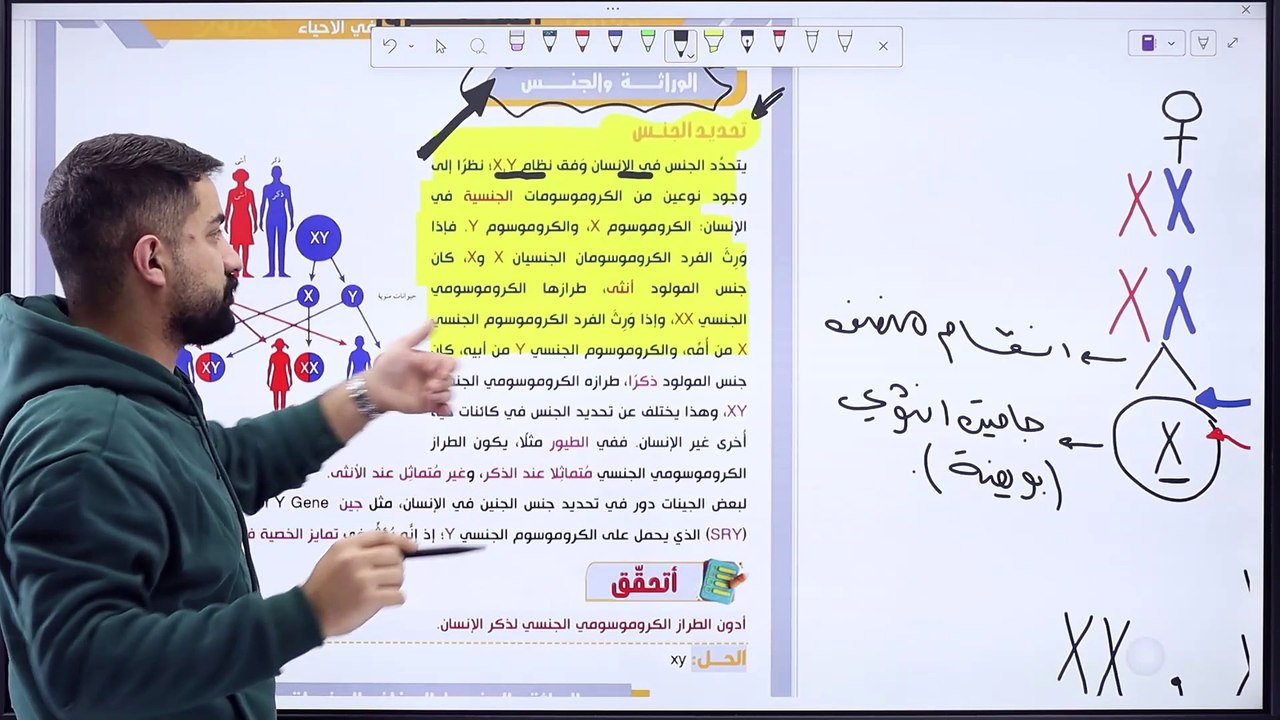 في الأحياء
الوراثة والجنس
تحديد الجنس
يتحدَّد الجنس في الإنسان وَفق نظام X,Y؛ نظرًا إلى
وجود نوعين من الكروموسومات الجنسية في
الإنسان: الكروموسوم X، والكروموسوم Y. فإذا
وَرِثَ الفرد الكروموسومان الجنسيان X وX، كان
جنس المولود أنثى، طرازها الكروموسومي
الجنسي XX، وإذا وَرِثَ الفرد الكروموسوم الجنسي
X من أُمِّه، والكروموسوم الجنسي Y من أبيه، كان
جنس المولود ذكرًا، طرازه الكروموسومي
XY، وهذا يختلف عن تحديد الجنس في كائنات
أُخرى غير الإنسان. ففي الطيور مثلًا، يكون الطراز
الكروموسومي الجنسي مُتماثِلا عند الذكر، وغير مُتماثِل عند الأنثى.
لبعض الجينات دور في تحديد جنس الجنين في الإنسان، مثل جين Y Gene
(SRY) الذي يحمل على الكروموسوم الجنسي Y؛ إذ إنَّه في تمايز الخصية
أتحقّق
أدون الطراز الكروموسومي الجنسي لذكر الإنسان.
الحل: xy
أنثى
ذكر
أنثى
ذكر
XY
X
Y
حيوانات منوية
XY
XX
♀
X X
X X
انقسام منصف
X
جاميت انثوي
(بويضة).
XX ,